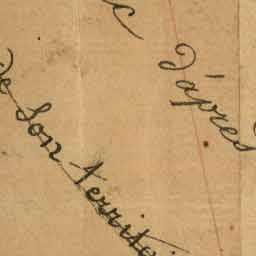 d'après
de Son territoi